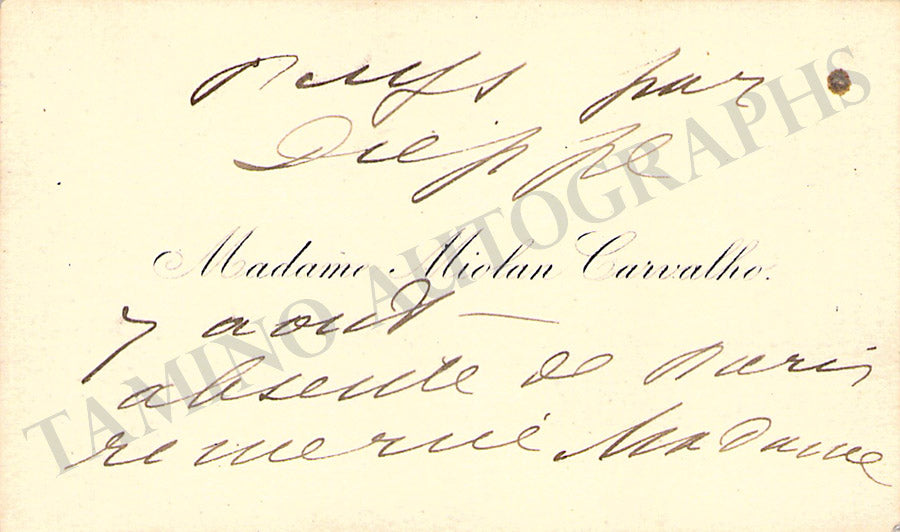 Puys par
Dieppe
Madame Miolan Carvalho.
7 aout —
absente de Paris
remercie Madame
TAMINO AUTOGRAPHS